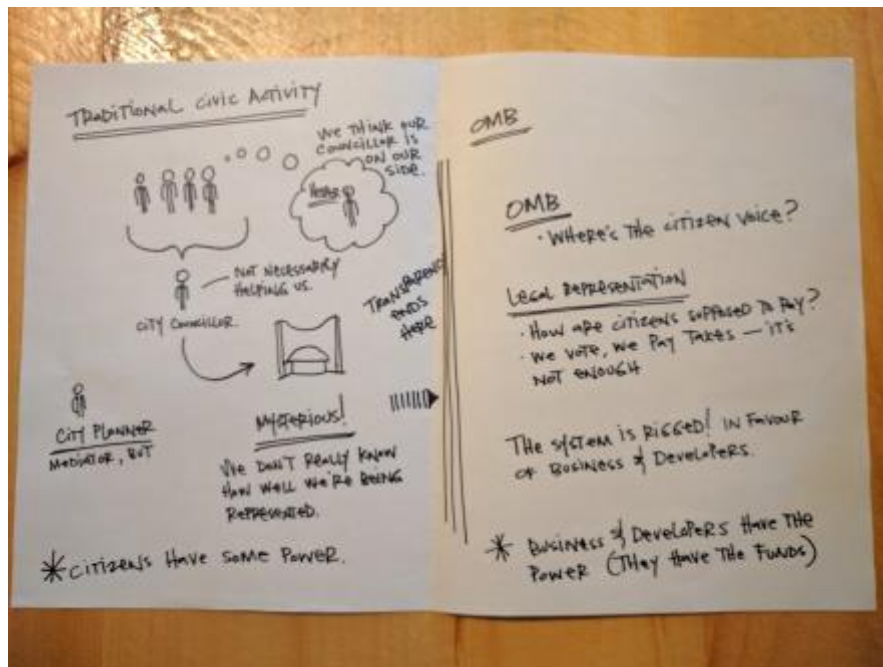 TRADITIONAL CIVIC ACTIVITY
WE THINK OUR
COUNCILLOR IS
ON OUR
SIDE.
NOT NECESSARILY
HELPING US.
CITY COUNCILLOR.
TRANSPARENCY
ENDS
HERE
CITY PLANNER
MEDIATOR, BUT
MYSTERIOUS!
WE DON'T REALLY KNOW
HOW WELL WE'RE BEING
REPRESENTED.
* CITIZENS HAVE SOME POWER.
OMB
OMB
· WHERE'S THE CITIZEN VOICE?
LEGAL REPRESENTATION
· HOW ARE CITIZENS SUPPOSED TO PAY?
· WE VOTE, WE PAY TAXES — IT'S
NOT ENOUGH
THE SYSTEM IS RIGGED! IN FAVOUR
OF BUSINESS & DEVELOPERS.
* BUSINESS & DEVELOPERS HAVE THE
POWER (THEY HAVE THE FUNDS)